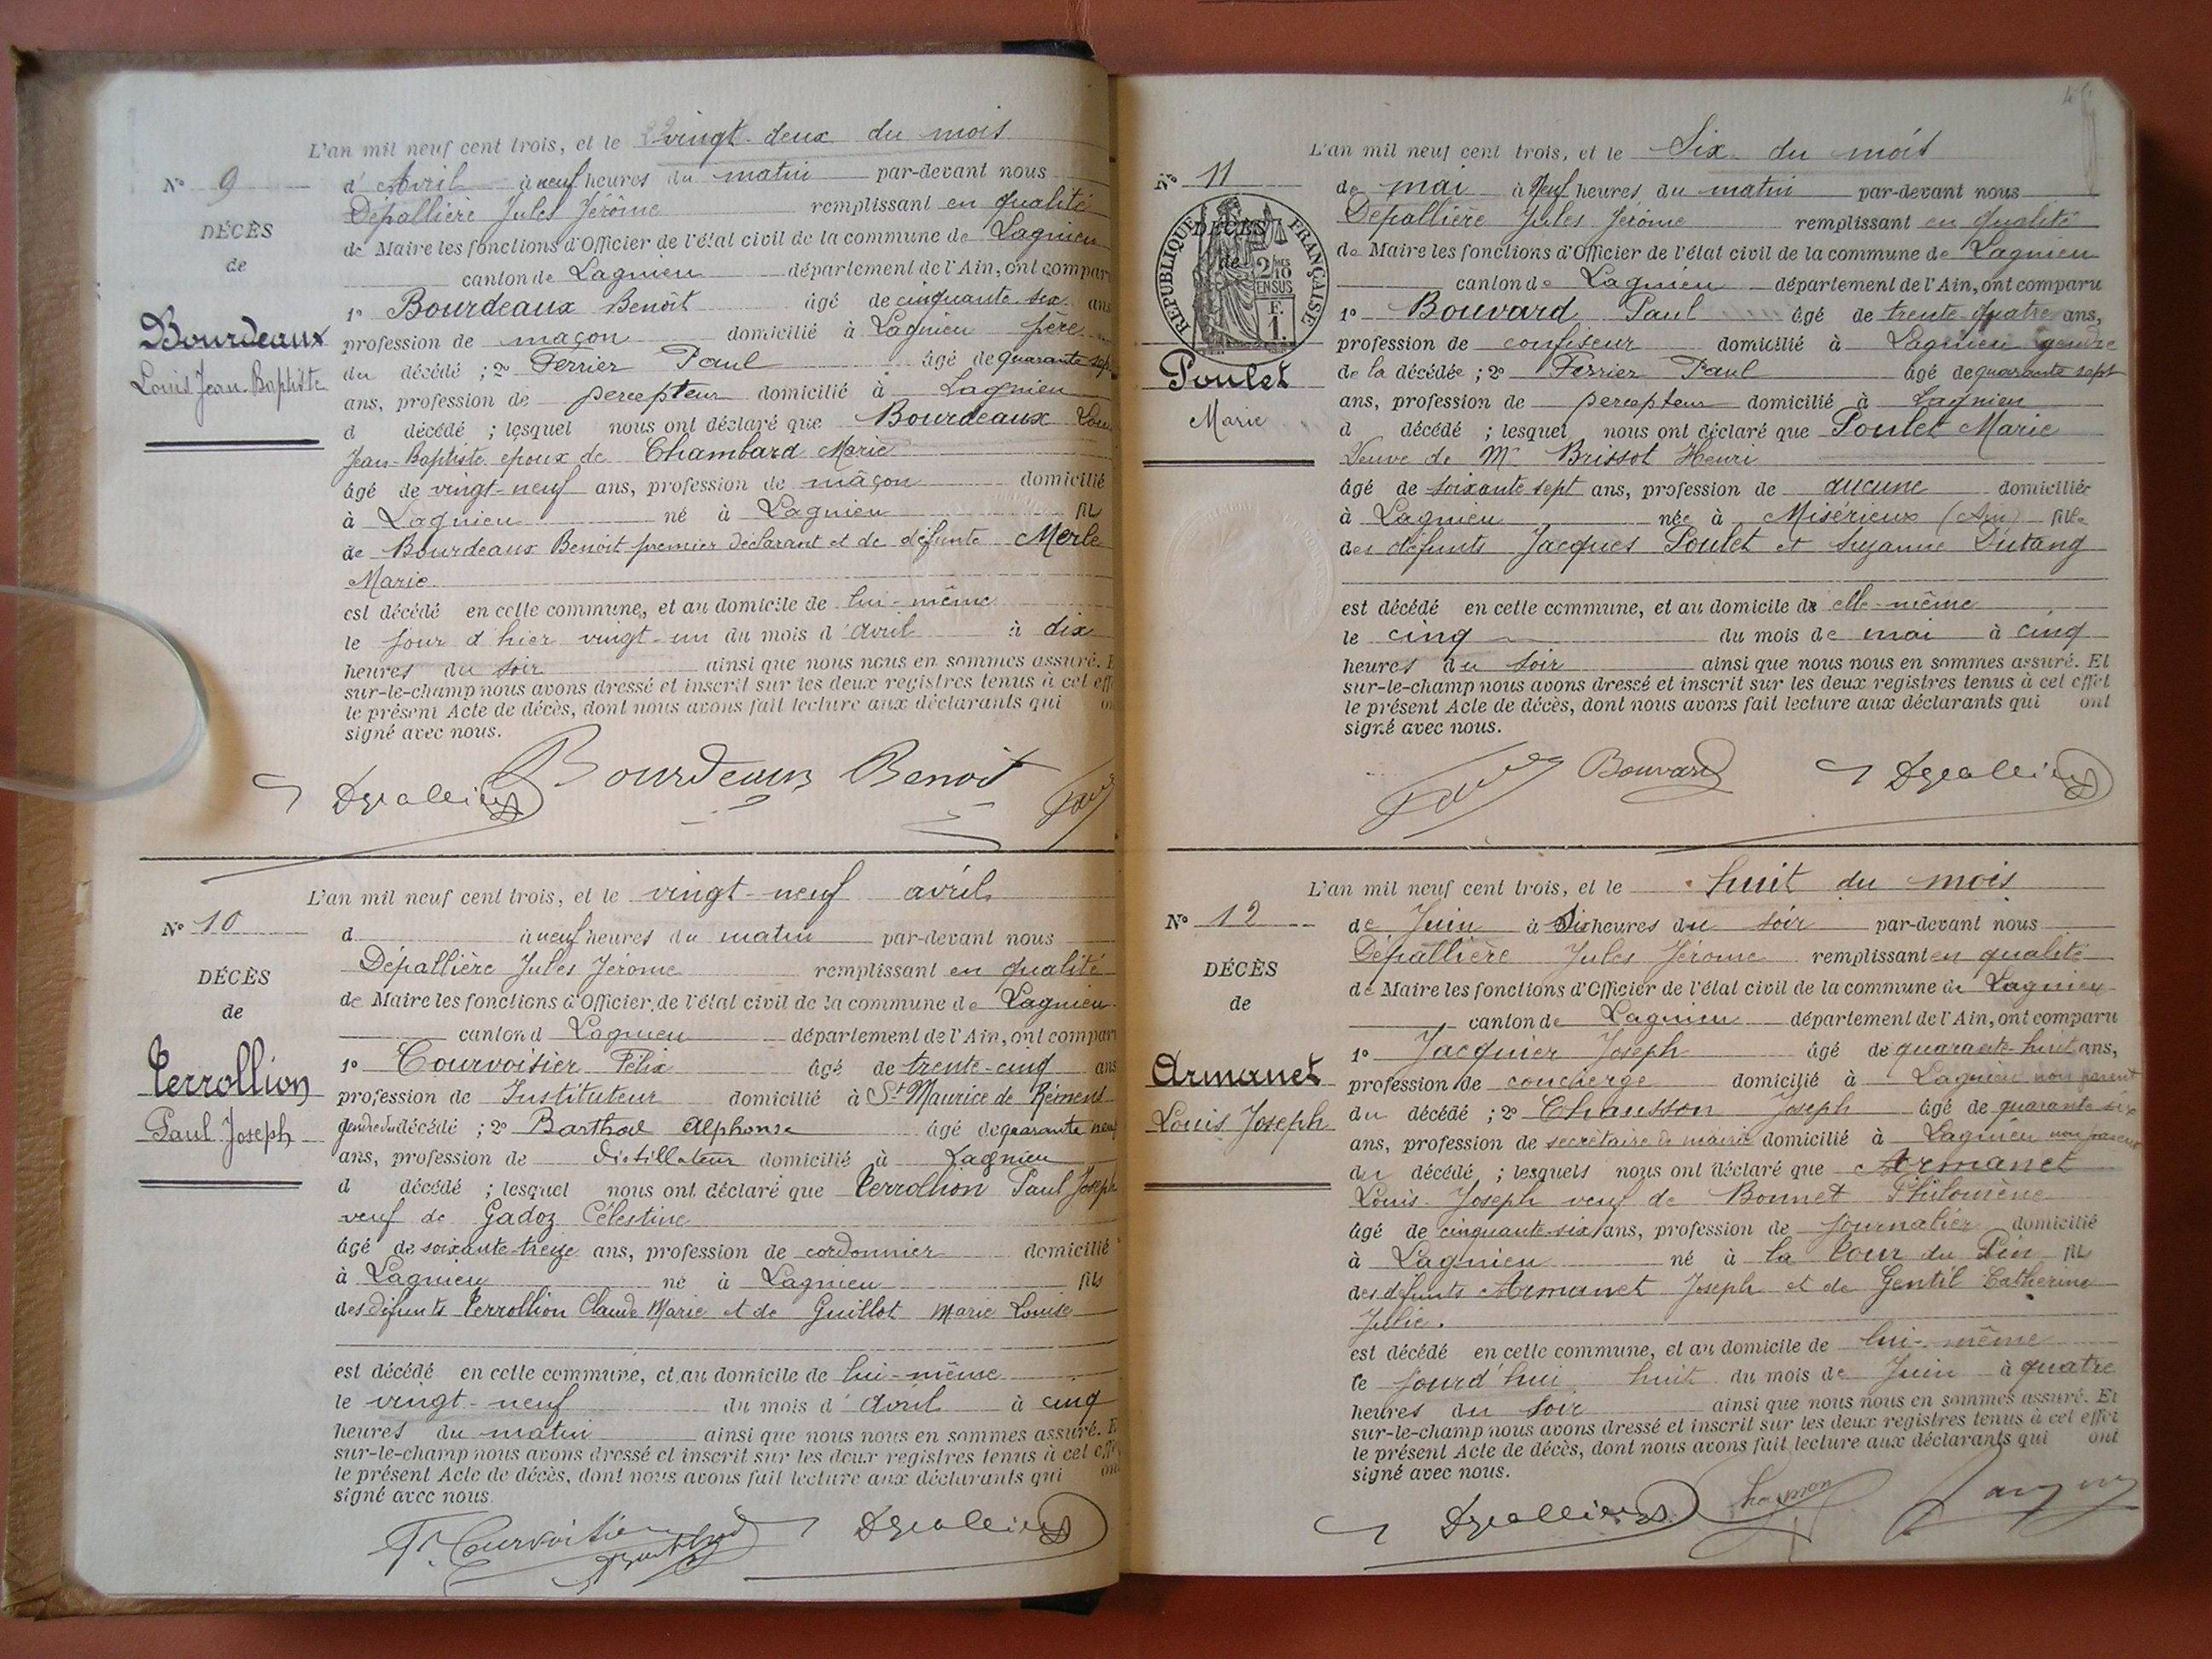 L'an mil neuf cent trois, et le vingt-deux du mois
N° 9
d'Avril à neuf heures du matin par-devant nous
Dépallière Jules Jérôme remplissant en qualité
DÉCÈS
de
de Maire les fonctions d'Officier de l'état civil de la commune de Lagnieu
canton de Lagnieu département de l'Ain, ont compar
1° Bourdeaux Benoît âgé de cinquante-six ans
Bourdeaux
Louis Jean-Baptiste
profession de maçon domicilié à Lagnieu père
du décédé ; 2° Ferrier Paul âgé de quarante sept
ans, profession de percepteur domicilié à Lagnieu
d décédé ; lesquel nous ont déclaré que Bourdeaux Lou
Jean-Baptiste époux de Chambard Marie
âgé de vingt-neuf ans, profession de mâçon domicilié
à Lagnieu né à Lagnieu fils
de Bourdeaux Benoit premier déclarant et de défunte Merle
Marie
est décédé en cette commune, et au domicile de lui-même
le jour d'hier vingt-un du mois d'avril à dix
heures du soir ainsi que nous nous en sommes assuré. E
sur-le-champ nous avons dressé et inscrit sur les deux registres tenus à cet eff
le présent Acte de décès, dont nous avons fait lecture aux déclarants qui on
signé avec nous.
Dépallière Bourdeaux Benoit
L'an mil neuf cent trois, et le vingt-neuf avril
N° 10
d à neuf heures du matin par-devant nous
Dépallière Jules Jérome remplissant en qualité
DÉCÈS
de
de Maire les fonctions d'Officier de l'état civil de la commune de Lagnieu
canton d Lagnieu département de l'Ain, ont compar
1° Courvoisier Félix âgé de trente-cinq ans
Perrollion
Paul Joseph
profession de Instituteur domicilié à St Maurice de Rémens
gendre du décédé ; 2° Barthod Alphonse âgé de quarante neuf
ans, profession de distillateur domicilié à Lagnieu
d décédé ; lesquel nous ont déclaré que Perrollion Paul Joseph
veuf de Gadoz Célestine
âgé de soixante-treize ans, profession de cordonnier domicilié
à Lagnieu né à Lagnieu fils
des défunts Perrollion Claude Marie et de Guillot Marie Louise
est décédé en cette commune, et au domicile de lui-même
le vingt-neuf du mois d'avril à cinq
heures du matin ainsi que nous nous en sommes assuré. E
sur-le-champ nous avons dressé et inscrit sur les deux registres tenus à cet eff
le présent Acte de décès, dont nous avons fait lecture aux déclarants qui ont
signé avec nous
F. Courvoisier Dépallière
L'an mil neuf cent trois, et le Six du mois
N° 11
de mai à Neuf heures du matin par-devant nous
Dépallière Jules Jérome remplissant en qualité
DÉCÈS
de
RÉPUBLIQUE FRANÇAISE
2/10 EN SUS
F. 1.
de Maire les fonctions d'Officier de l'état civil de la commune de Lagnieu
canton de Lagnieu département de l'Ain, ont comparu
1° Bouvard Paul âgé de trente quatre ans,
Poulet
Marie
profession de confiseur domicilié à Lagnieu gendre
de la décédée ; 2° Ferrier Paul âgé de quarante sept
ans, profession de percepteur domicilié à Lagnieu
d décédé ; lesquel nous ont déclaré que Poulet Marie
Veuve de Mr Brissot Henri
âgé de soixante sept ans, profession de aucune domiciliée
à Lagnieu née à Misérieux (Ain) fille
des défunts Jacques Poulet et Suzanne Dutang
est décédé en cette commune, et au domicile de elle-même
le cinq du mois de mai à cinq
heures du soir ainsi que nous nous en sommes assuré. Et
sur-le-champ nous avons dressé et inscrit sur les deux registres tenus à cet effet
le présent Acte de décès, dont nous avons fait lecture aux déclarants qui ont
signé avec nous.
Bouvard Dépallière
L'an mil neuf cent trois, et le huit du mois
N° 12
de Juin à Six heures du soir par-devant nous
Dépallière Jules Jérome remplissant en qualité
DÉCÈS
de
de Maire les fonctions d'Officier de l'état civil de la commune de Lagnieu
canton de Lagnieu département de l'Ain, ont comparu
1° Jacquier Joseph âgé de quarante-huit ans,
Armanet
Louis Joseph
profession de concierge domicilié à Lagnieu non parent
du décédé ; 2° Chausson Joseph âgé de quarante six
ans, profession de secrétaire de mairie domicilié à Lagnieu non parent
du décédé ; lesquels nous ont déclaré que Armanet
Louis-Joseph veuf de Bonnet Philomène
âgé de cinquante-six ans, profession de journalier domicilié
à Lagnieu né à la Tour du Pin fils
des défunts Armanet Joseph et de Gentil Catherine
Julie.
est décédé en cette commune, et au domicile de lui-même
le jourd'hui huit du mois de Juin à quatre
heures du soir ainsi que nous nous en sommes assuré. Et
sur-le-champ nous avons dressé et inscrit sur les deux registres tenus à cet effet
le présent Acte de décès, dont nous avons fait lecture aux déclarants qui ont
signé avec nous.
Dépallière Chausson